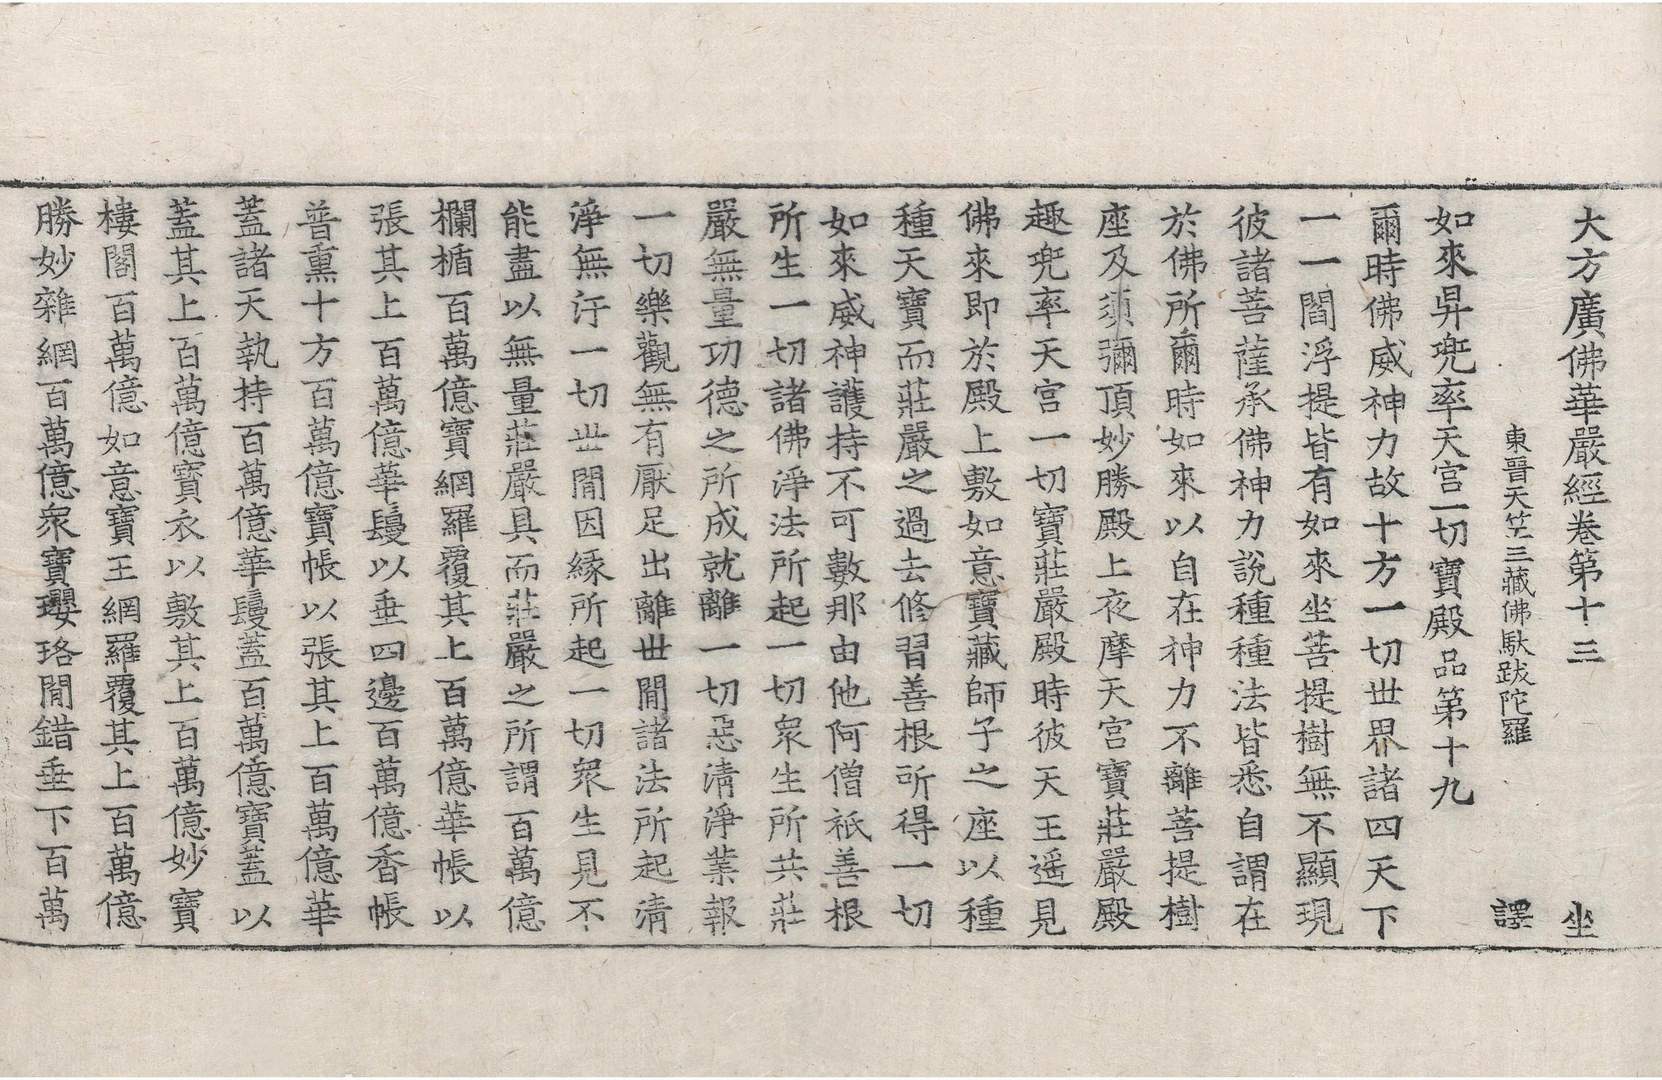 大方廣佛華嚴經卷第十三　坐
東晉天竺三藏佛馱跋陀羅　譯
如來昇兜率天宮一切寶殿品第十九
爾時佛威神力故十方一切世界諸四天下
一一閻浮提皆有如來坐菩提樹無不顯現
彼諸菩薩承佛神力說種種法皆悉自謂在
於佛所爾時如來以自在神力不離菩提樹
座及須彌頂妙勝殿上夜摩天宮寶莊嚴殿
趣兜率天宮一切寶莊嚴殿時彼天王遥見
佛來即於殿上敷如意寶藏師子之座以種
種天寶而莊嚴之過去修習善根所得一切
如來威神護持不可數那由他阿僧祇善根
所生一切諸佛淨法所起一切衆生所共莊
嚴無量功德之所成就離一切惡清淨業報
一切樂觀無有厭足出離世間諸法所起清
淨無汙一切世間因緣所起一切衆生見不
能盡以無量莊嚴具而莊嚴之所謂百萬億
欄楯百萬億寶網羅覆其上百萬億華帳以
張其上百萬億華鬘以垂四邊百萬億香帳
普熏十方百萬億寶帳以張其上百萬億華
蓋諸天執持百萬億華鬘蓋百萬億寶蓋以
蓋其上百萬億寶衣以敷其上百萬億妙寶
樓閣百萬億如意寶王網羅覆其上百萬億
勝妙雜網百萬億衆寶瓔珞間錯垂下百萬